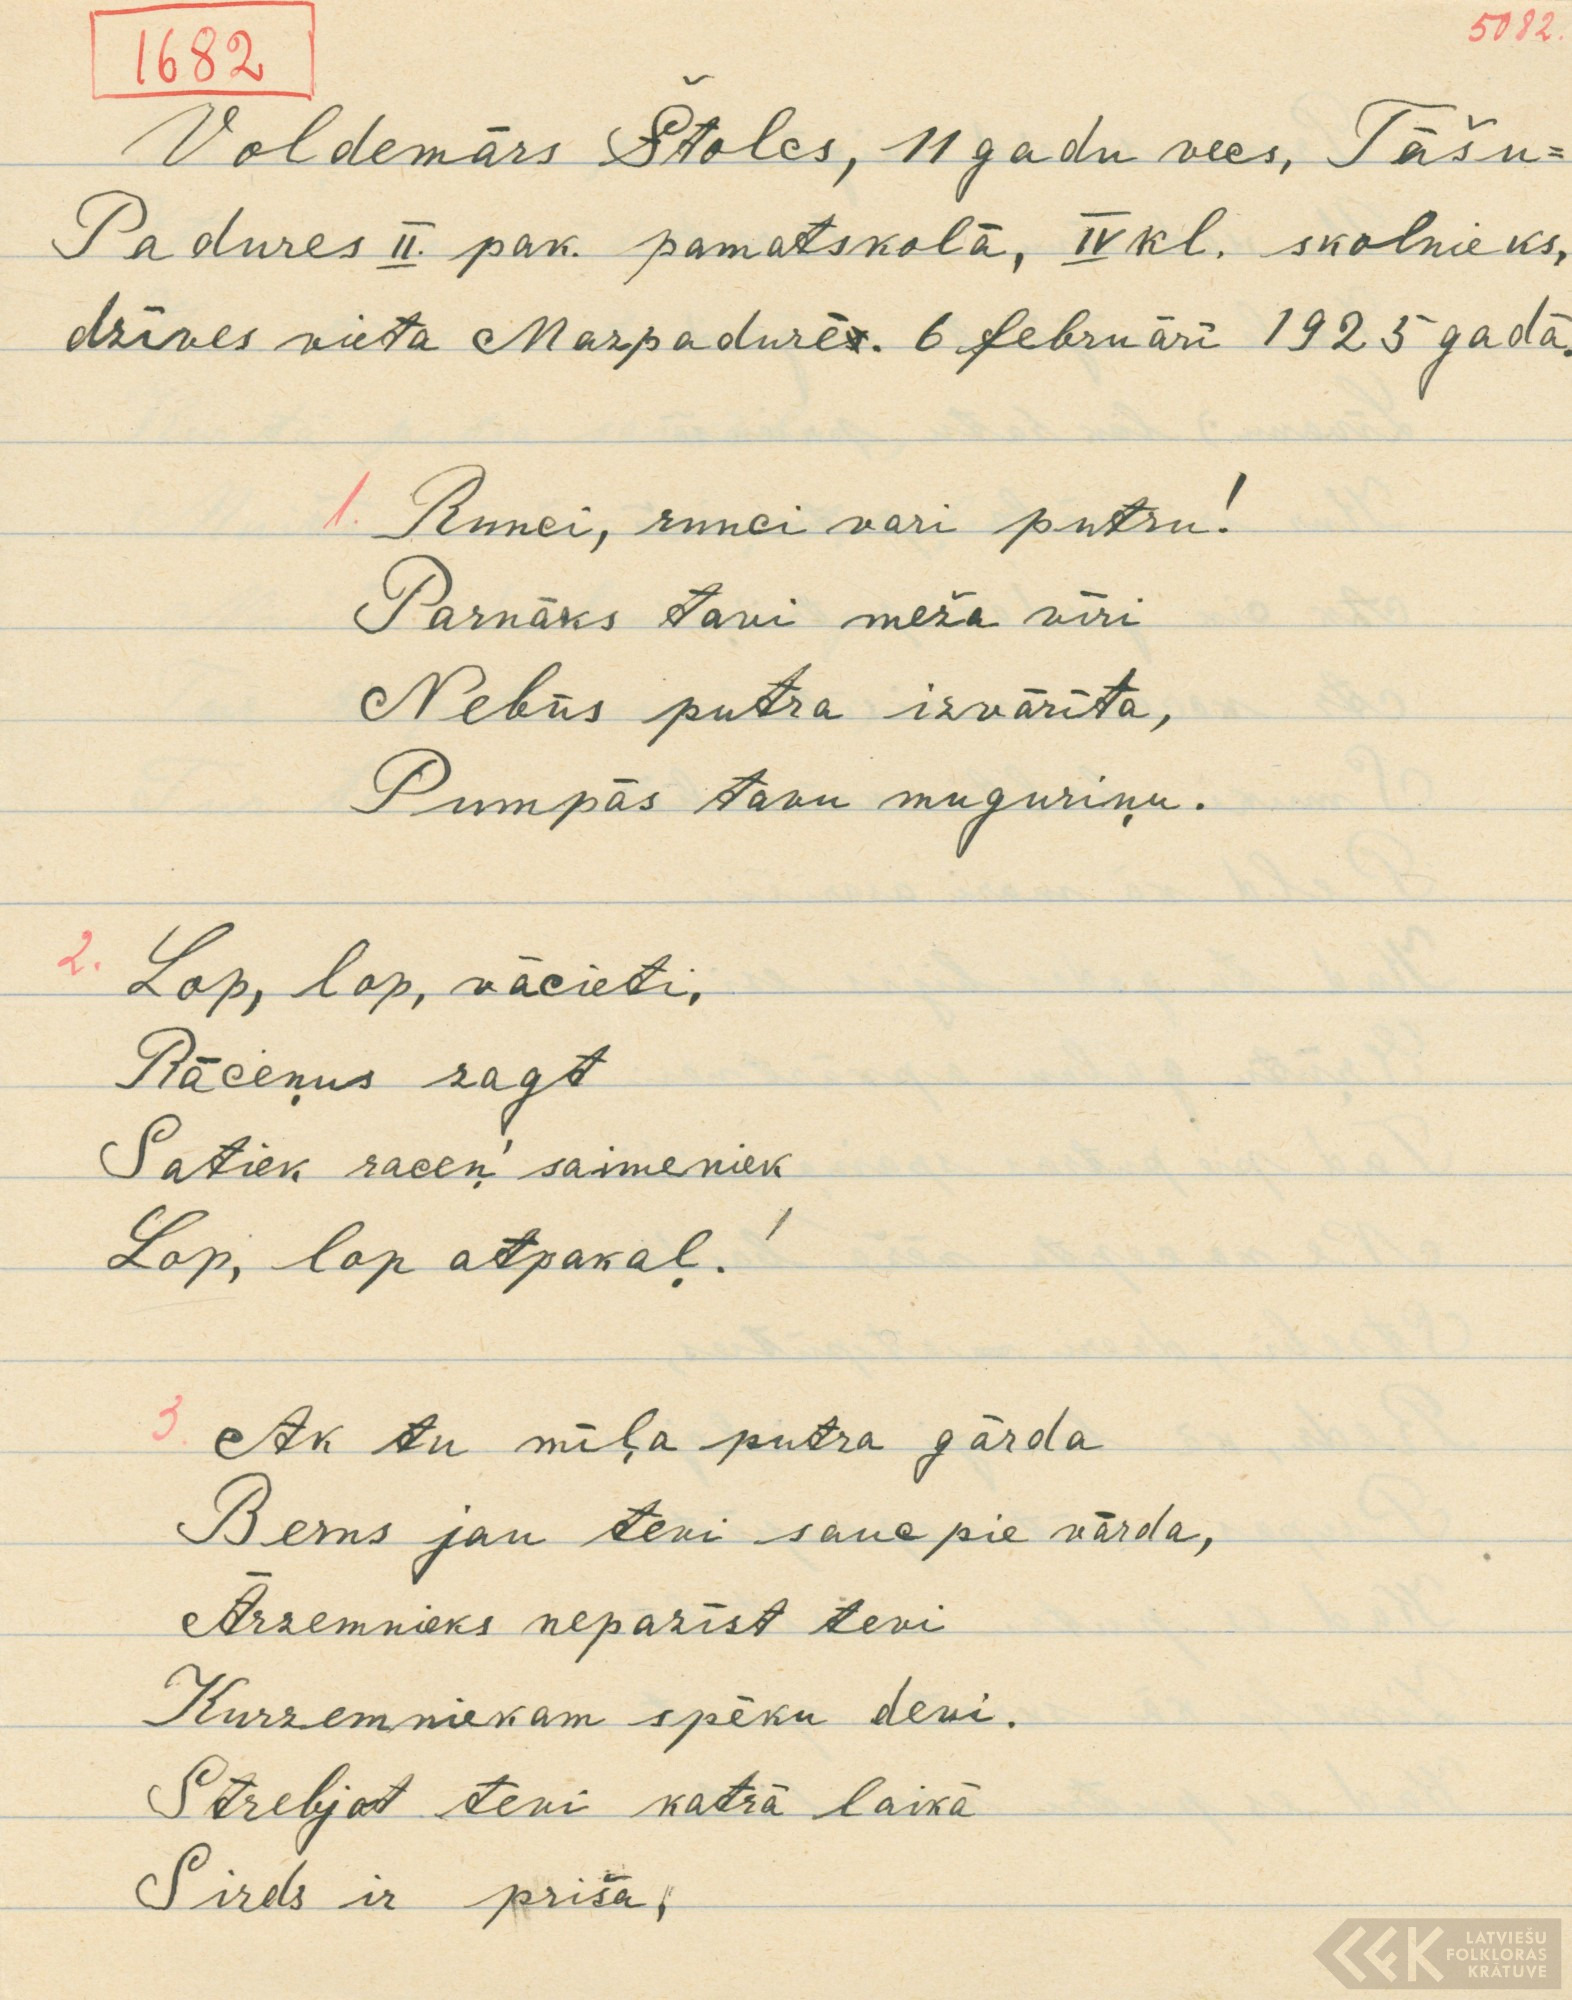 1682
5082.
Voldemārs Štolcs, 11 gadu vecs, Tāšu=
Padures II. pak. pamatskolā, IV kl. skolnieks,
dzīves vieta Mazpadurē. 6 februārī 1925 gadā.
1. Runci, runci vari putru!
Parnāks tavi meža vīri
Nebūs putra izvārīta,
Pumpās tavu muguriņu.
2. Lop, lop, vācieti,
Rāceņus zagt
Satiek raceņ' saimeniek
Lop, lop atpakaļ.!
3. Ak tu mīļa putra gārda
Berns jau tevi sauc pie vārda,
Ārzemnieks nepazīst tevi
Kurzemniekam spēku devi.
Strebjot tevi katrā laikā
Sirds ir priša,
LATVIEŠU
FOLKLORAS
KRĀTUVE